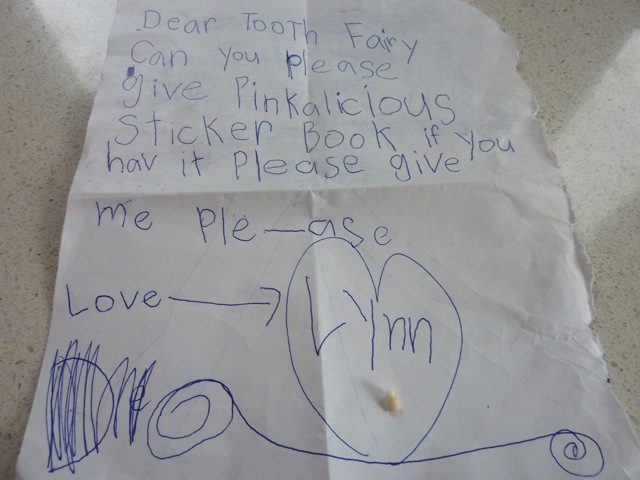 Dear Tooth Fairy
Can you please
give Pinkalicious
Sticker Book if you
hav it Please give
me Ple—ase
Love
Lynn